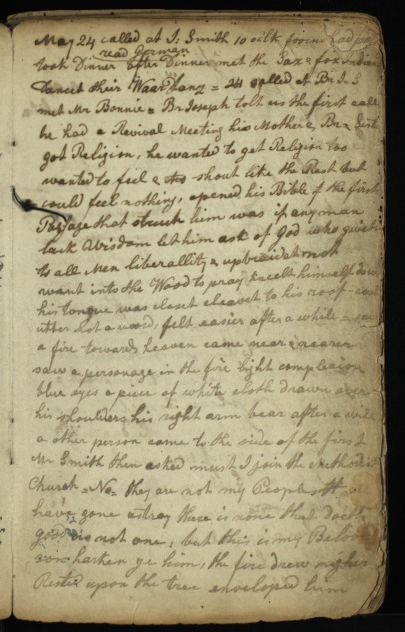 May 24 called at J. Smith 10 oilk
read German
took Dinner after Dinner met the Sax & fox Indian
Dancet their Waar Danz = 24 called at Br J. S
met Mr Bonnie = Br Joseph tolt us the first call
he had a Revival Meeting his Mother & Br & Sist
got Religion, he wanted to get Religion too
wanted to feel & sho shout like the Rest but
could feel nothing, opened his Bible f the first
Passage that struck him was if any man
lack Wisdom let him ask of God who giveth
to all Men liberallity & upbraidet not
want into the Wood to pray kneelt himself down
his tongue was closet cleavet to his roof
utter not a word, felt easier after a while = saw
a fire towards heaven came near & nearer
saw a personage in the fire light complexion
blue eyes a piece of white cloth drawn over
his shoulders his right arm bear after a wile
a other person came to the side of the first
Mr Smith then asked must I join the Methodist
Church = No = they are not my People, 
have gone astray there is none that doeth
good no not one, but this is my Beloved
son harken ye him, the fire drew nigher
Rested upon the tree enveloped him